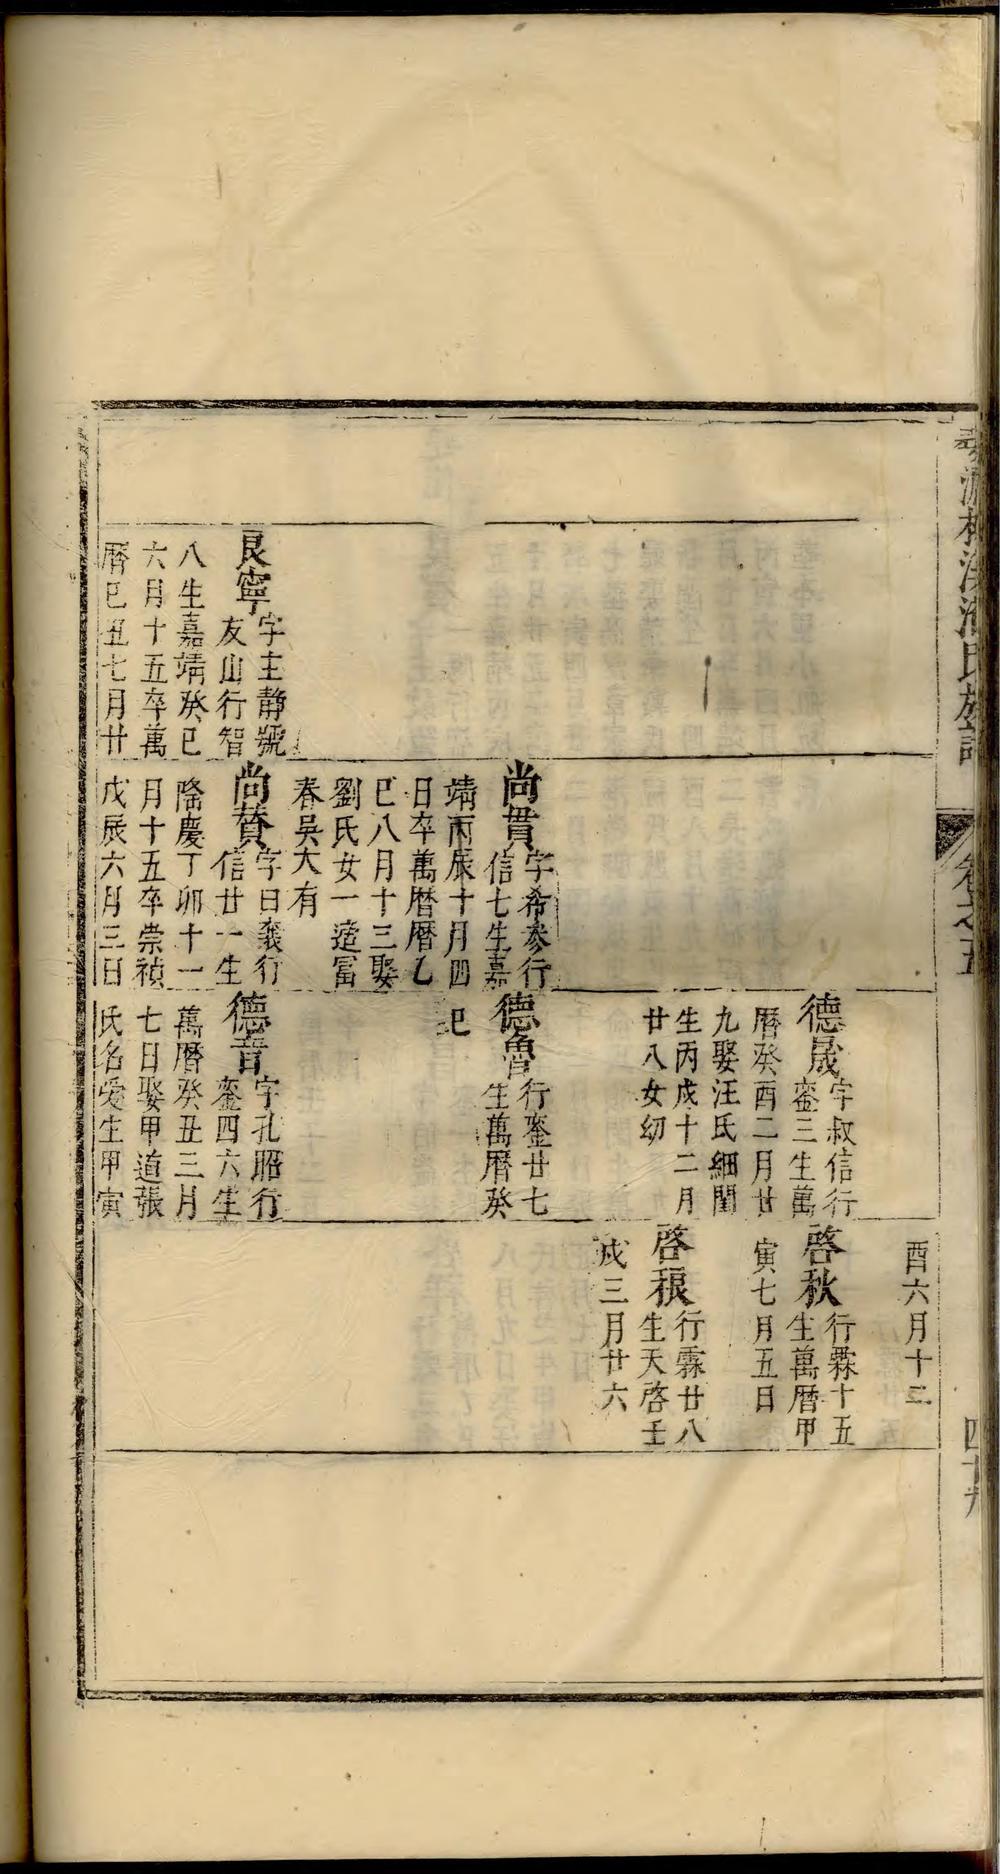 卷之五
四十九
良寧
字主靜號
友山行智
八生嘉靖癸巳
六月十五卒萬
曆己丑七月廿
尚貫
字希參行
信七生嘉
靖丙辰十月四
日卒萬曆曆乙
巳八月十三娶
劉氏女一適冨
春吳大有
尚賛
字曰襄行
信廿一生
隆慶丁卯十一
月十五卒崇禎
戊辰六月三日
德晟
字叔信行
銮三生萬
曆癸酉二月廿
九娶汪氏細閨
生丙戌十二月
廿八女幼
德魯
行銮廿七
生萬曆癸
巳
德音
字孔昭行
銮四六生
萬曆癸丑三月
七日娶甲道張
氏名愛生甲寅
酉六月十二
啓秋
行霖十五
生萬曆甲
寅七月五日
啓稂
行霖廿八
生天啓壬
戌三月廿六